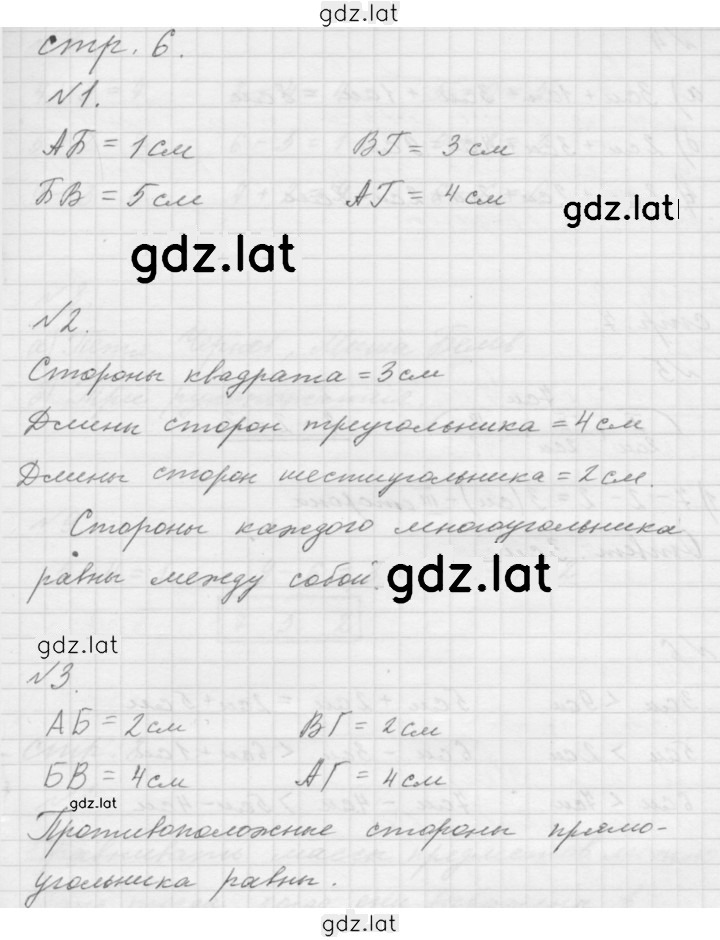 gdz.lat
стр. 6.
№1.
АБ = 1 см ВГ = 3 см
БВ = 5 см АГ = 4 см
gdz.lat
gdz.lat
№2.
Стороны квадрата = 3 см
Длины сторон треугольника = 4 см
Длины сторон шестиугольника = 2 см.
Стороны каждого многоугольника
равны между собой.
gdz.lat
gdz.lat
№3.
АБ = 2 см ВГ = 2 см
БВ = 4 см АГ = 4 см
gdz.lat
Противоположные стороны прямо-
угольника равны.
gdz.lat